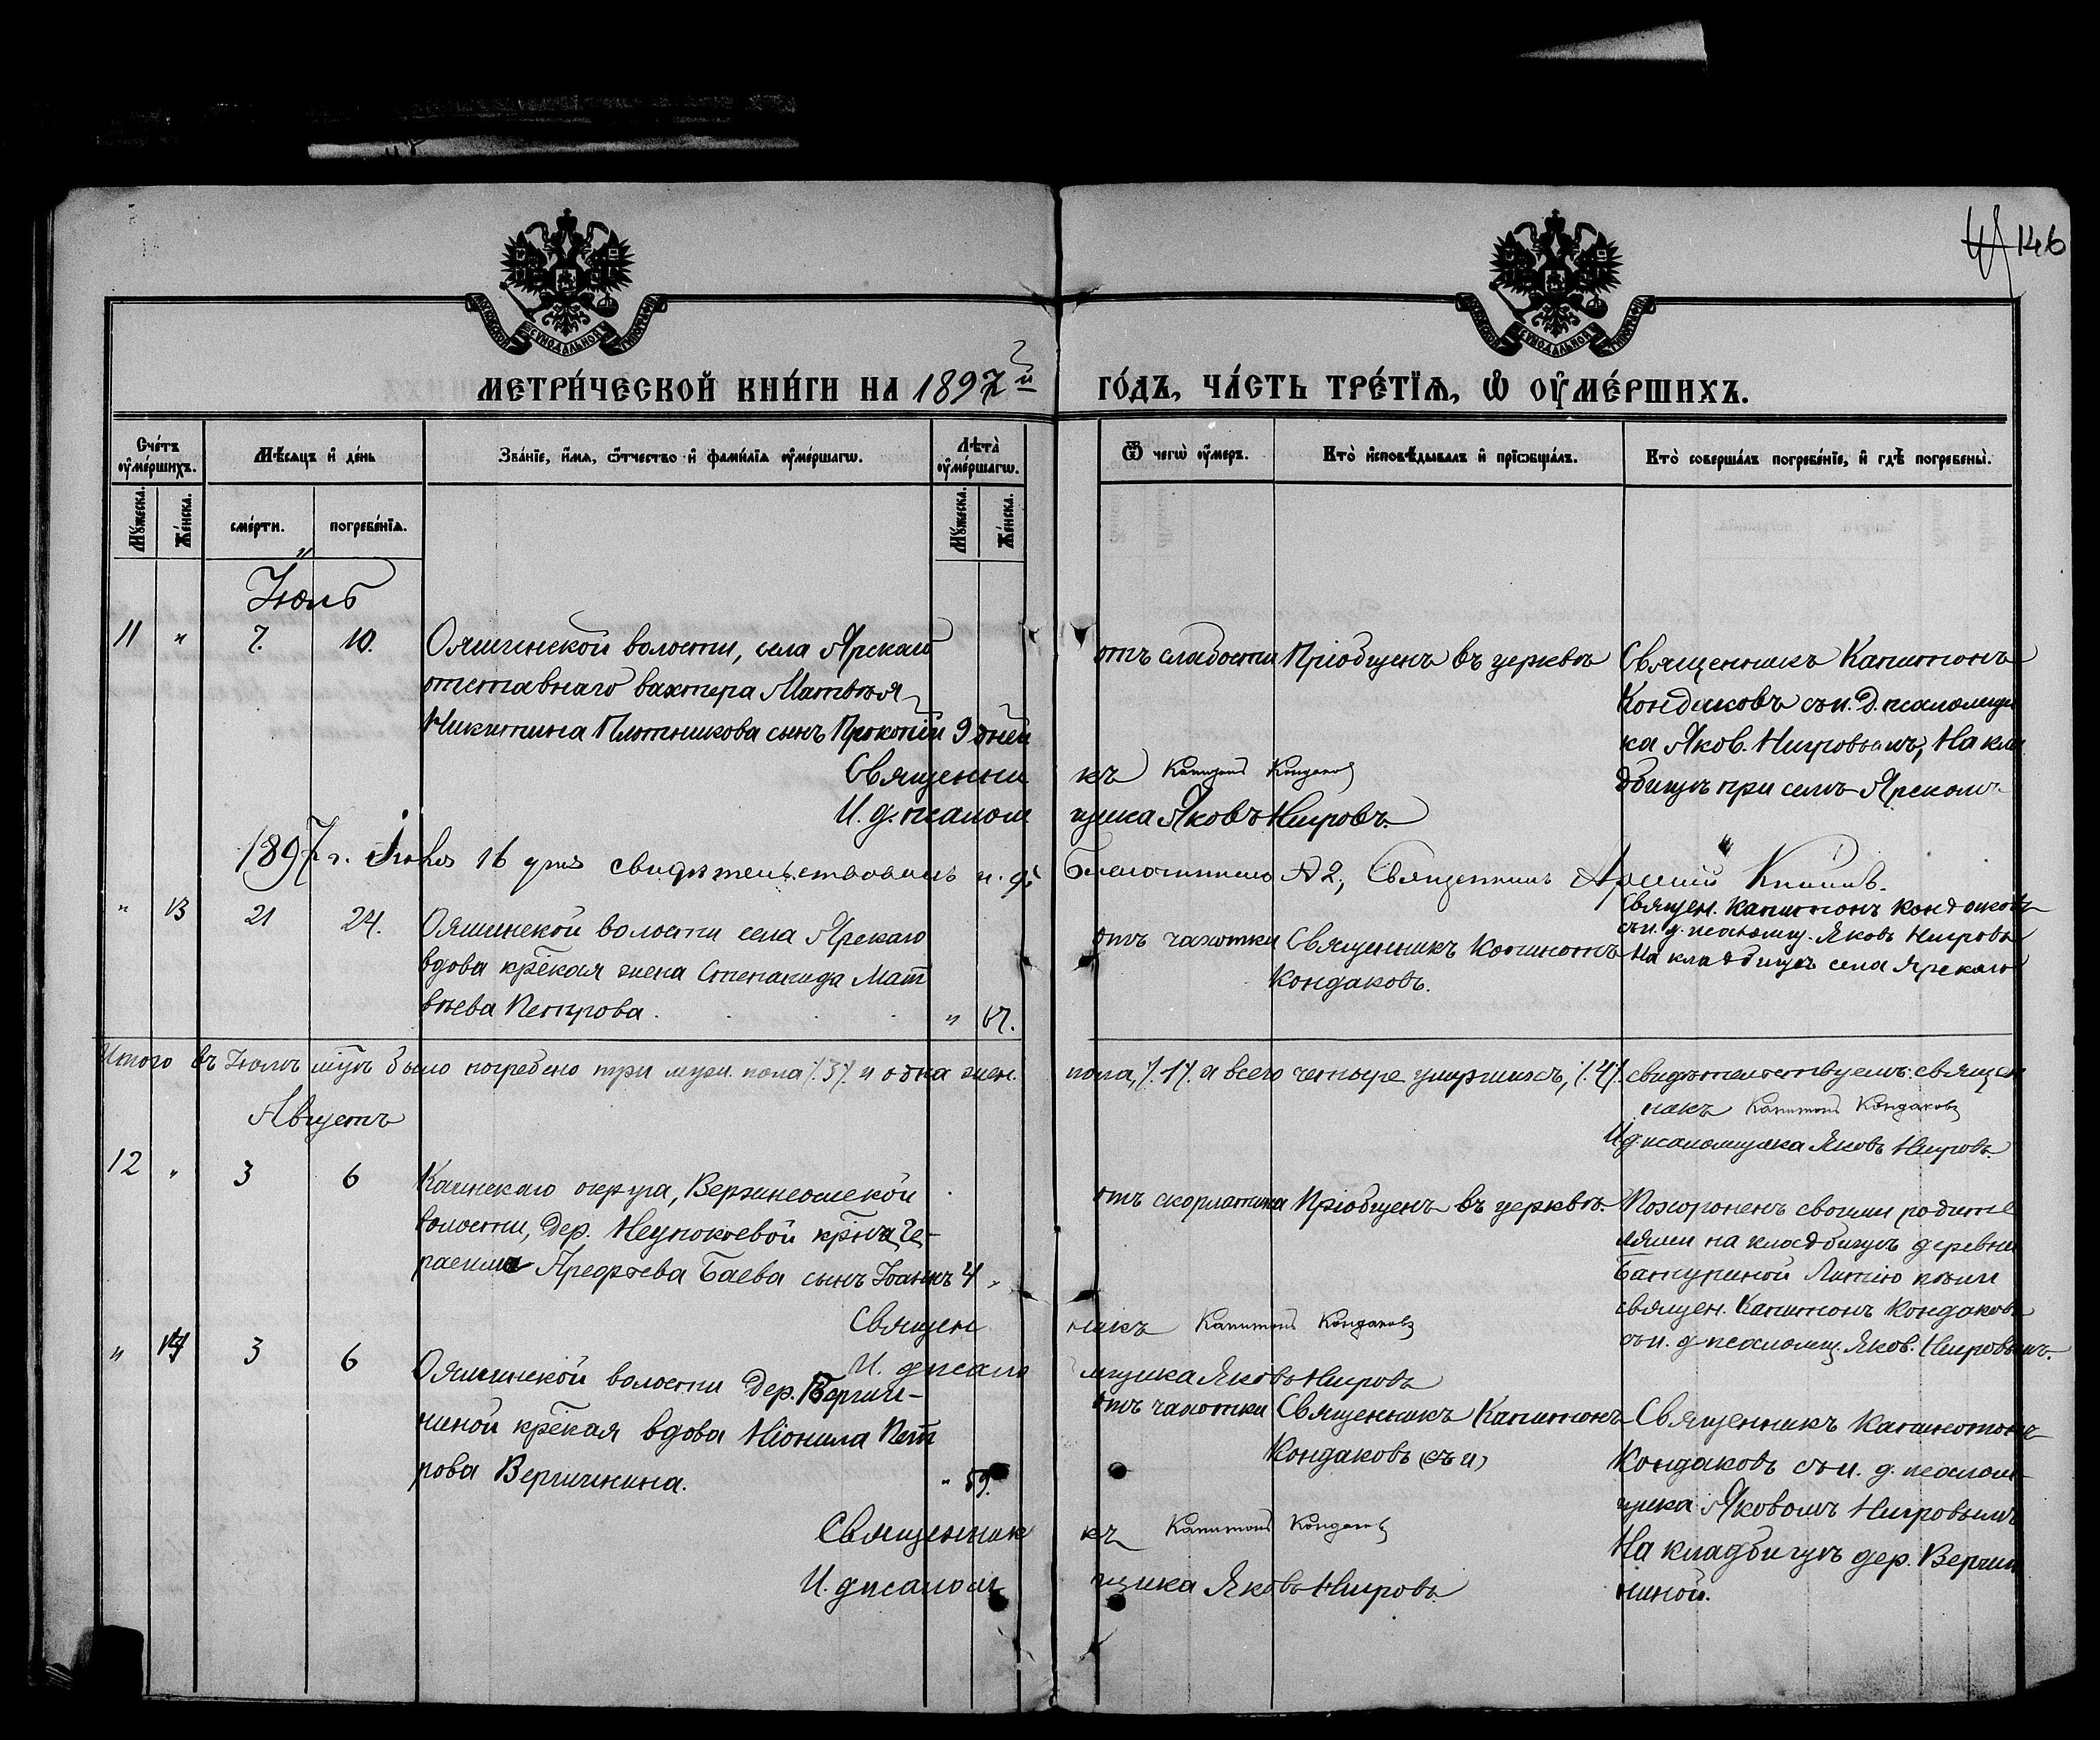 146
МЕТРИ́ЧЕСКОЙ КНИ́ГИ НА 1897й ГО́ДЪ, ЧА́СТЬ ТРЕ́ТЇѦ, Ѡ ОУ҆МЕ́РШИХЪ.
Сче́тъ оу҆ме́ршихъ.
Мѣ́сяцъ и҆ де́нь
Зва́нїе, и҆́мѧ, ѻ҆́тчество и҆ фами́лїѧ оу҆ме́ршагѡ.
Лѣ́та оу҆ме́ршагѡ.
Ѿ чегѡ̀ оу҆́меръ.
Кто̀ и҆сповѣ́дывалъ и҆ прїѡбща́лъ.
Кто̀ соверша́лъ погребе́нїе, и҆ гдѣ̀ погребены̀.
Мꙋ́жеска. Же́нска. сме́рти. погребе́нїѧ. Мꙋ́жеска. Же́нска.
Іюль
11 " 7. 10. Ояшинской волости, села Ярскаго
отставнаго вахтера Матвѣя
Никитина Плотникова сынъ Прокопій 9 дней
отъ слабости
Пріобщенъ въ церквѣ
Священникъ Капитонъ
Кондаковъ съ и. д. псаломщи
ка Яков. Нигровымъ, На кла
дбищѣ при селѣ Ярскомъ
Священникъ Капитонъ Кондаковъ
И. д. псаломщика Яковъ Нигровъ.
1897 г. 16 дня свидѣтельствовалъ и. д. Благочиннаго № 2, Священникъ
" 13 21 24. Ояшинской волости села Ярскаго
вдова крѣская жена Степанида Мат
вѣева Петрова. " 67.
отъ чахотки
Священникъ Капитонъ
Кондаковъ.
Священ. Капитонъ Кондаковъ
съ и. д. псаломщ. Яковъ Нигровъ
На кладбищѣ села Ярскаго
Итого въ Іюлѣ мцѣ было погребено три муж. пола /.3/. и одна жен. пола, /.1/. а всего четыре умершихъ, /.4/. свидѣтельствуемъ: священ
никъ Капитонъ Кондаковъ
И д псаломщика Яковъ Нигровъ.
Августъ
12 " 3 6 Каинскаго округа,
волости, дер. Неупокоевой крѣна Ге-
расима Арефьева Баева сынъ Іоаннъ 4 "
отъ скорлатина
Пріобщенъ въ церквѣ.
Похороненъ своими родите
лями на кладбищѣ деревни
Батуриной Литію пѣли
священ. Капитонъ Кондаковъ
съ и. д псаломщ. Яков. Нигровымъ.
Священникъ Капитонъ Кондаковъ
И. д псаломщика Яковъ Нигровъ
" 14 3 6 Ояшинской волости дер. Вершин-
ниной крѣская вдова Неонила Пет
рова Вершинина. " 59.
отъ чахотки
Священникъ Капитонъ
Кондаковъ (съ и)
Священникъ Капитонъ
Кондаковъ съ и. д. псалом-
щика Яковомъ Нигровымъ
На кладбищѣ дер. Вершин
ниной.
Священникъ Капитонъ Кондаковъ
И. д псаломщика Яковъ Нигровъ.